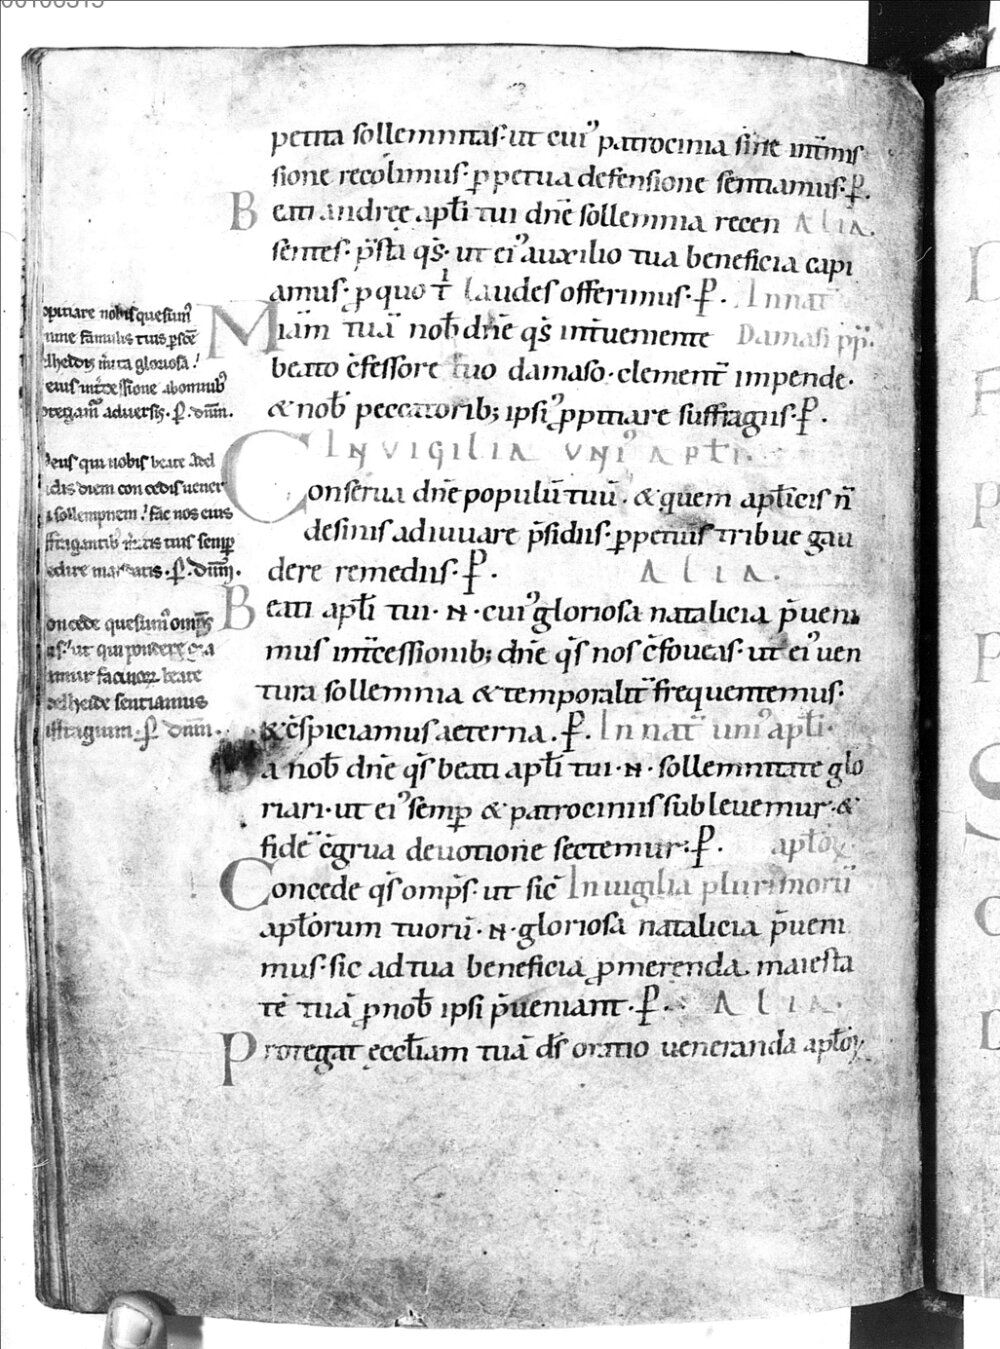 petita sollemnitas· ut cuiꝰ patrocinia sine int̄mis
sione recolimus· ꝑpetua defensione sentiamus· ꝑ.
Beati andreę apłi tui dn̄e sollemnia recen ALIA.
sentes· p̄sta qs̄· ut eiꝰ auxilio tua beneficia capi
amus· ꝑ quo t̄ laudes offerimus· ꝑ. In nat̄
Miām tuā nob̄ dn̄e qs̄ int̄uemente Damasi pp̄.
beato c̄fessore tuo damaso· clement̄ impende·
& nob̄ peccatorib; ipsiꝰ ꝓpitiare suffragiis· ꝑ.
IN VIGILIA UNIꝰ APŁI.
Conserua dn̄e populū tuū· & quem apłicis n̄
desinis adiuuare p̄sidiis· ꝑpetuis tribue gau
dere remediis· ꝑ. ALIA.
Beati apłi tui· N· cuiꝰ gloriosa natalicia p̄ueni
mus int̄cessionib; dn̄e qs̄ nos c̄foueas· ut eiꝰ uen
tura sollemnia & temporalit̄ frequentemus·
& c̄spiciamus aeterna. ꝑ. In nat̄ uniꝰ apłi·
a nob̄ dn̄e qs̄ beati apłi tui· N· sollemnitate glo
riari· ut eiꝰ semꝑ & patrociniis subleuemur· &
fidē c̄grua deuotione sectemur· ꝑ. apłoꝝ
Concede qs̄ omp̄s· ut sic̄ In uigilia plurimorū
apłorum tuorū· N· gloriosa natalicia p̄ueni
mus· sic ad tua beneficia ꝓmerenda· maiesta
tē tuā ꝓ nob̄ ipsi p̄ueniant· ꝑ. ALIA.
Protegat eccłiam tuā ds̄ oratio ueneranda apłoꝝ
opitiare nobis quesumꝰ
famulis tuis ꝑ sc̄ē
m̄ita gloriosa!
eius int̄cessione ab omnibꝰ
aduersis· ꝑ. dnm̄.
eus qui nobis beate Adel
dis diem concedis uener
sollempnem! fac nos eius
ffragantib m̄itis tuis semꝑ
ꝑ. dnm̄.
oncede quesumꝰ omp̄s
beate
delheide sentiamus
ffragium· ꝑ. dnm̄.